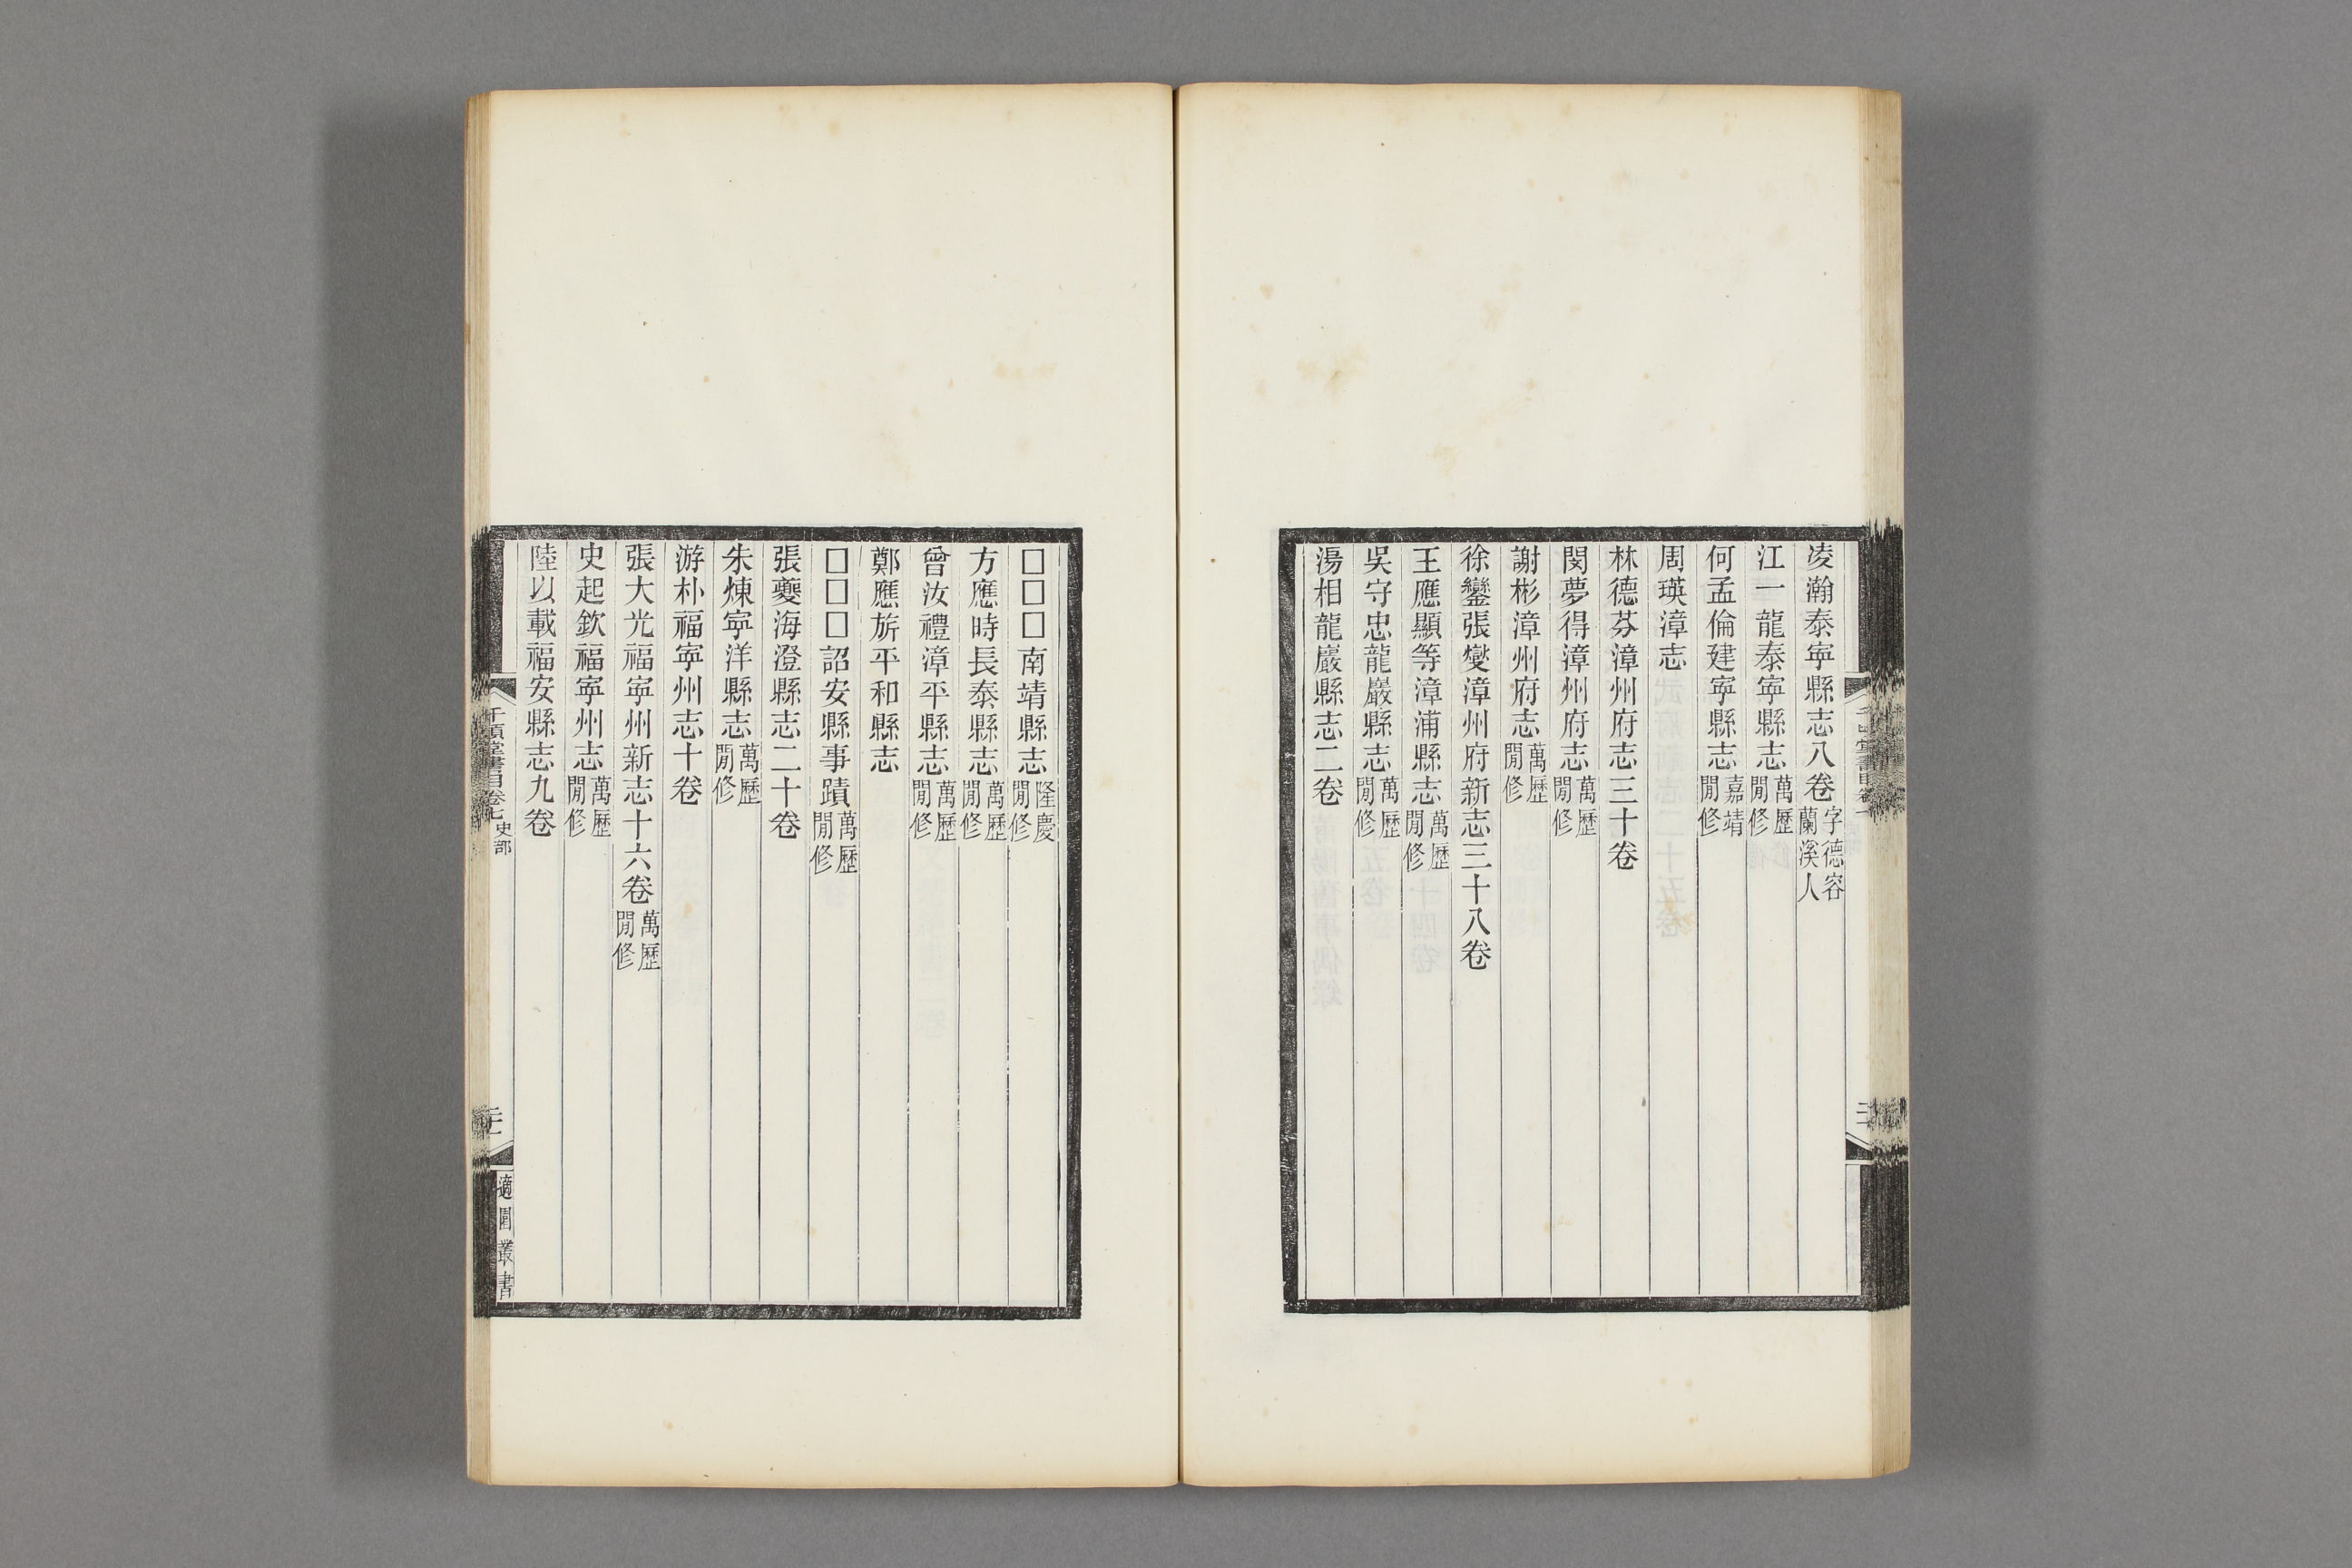 凌瀚泰寕縣志八卷字德容蘭溪人
江一龍泰寕縣志萬歷閒修
何孟倫建寕縣志嘉靖閒修
周瑛漳志
林德芬漳州府志三十卷
閔夢得漳州府志萬歷閒修
謝彬漳州府志萬歷閒修
徐鑾張燮漳州府新志三十八卷
王應顯等漳浦縣志萬歷閒修
吳守忠龍巖縣志萬歷閒修
湯相龍巖縣志二卷
□□□南靖縣志隆慶閒修
方應時長泰縣志萬歷閒修
曾汝禮漳平縣志萬歷閒修
鄭應旂平和縣志
□□□詔安縣事蹟萬歷閒修
張夔海澄縣志二十卷
朱煉寕洋縣志萬歷閒修
游朴福寕州志十卷
張大光福寕州新志十六卷萬歷閒修
史起欽福寕州志萬歷閒修
陸以載福安縣志九卷
千頃堂書目卷七史部
適園叢書